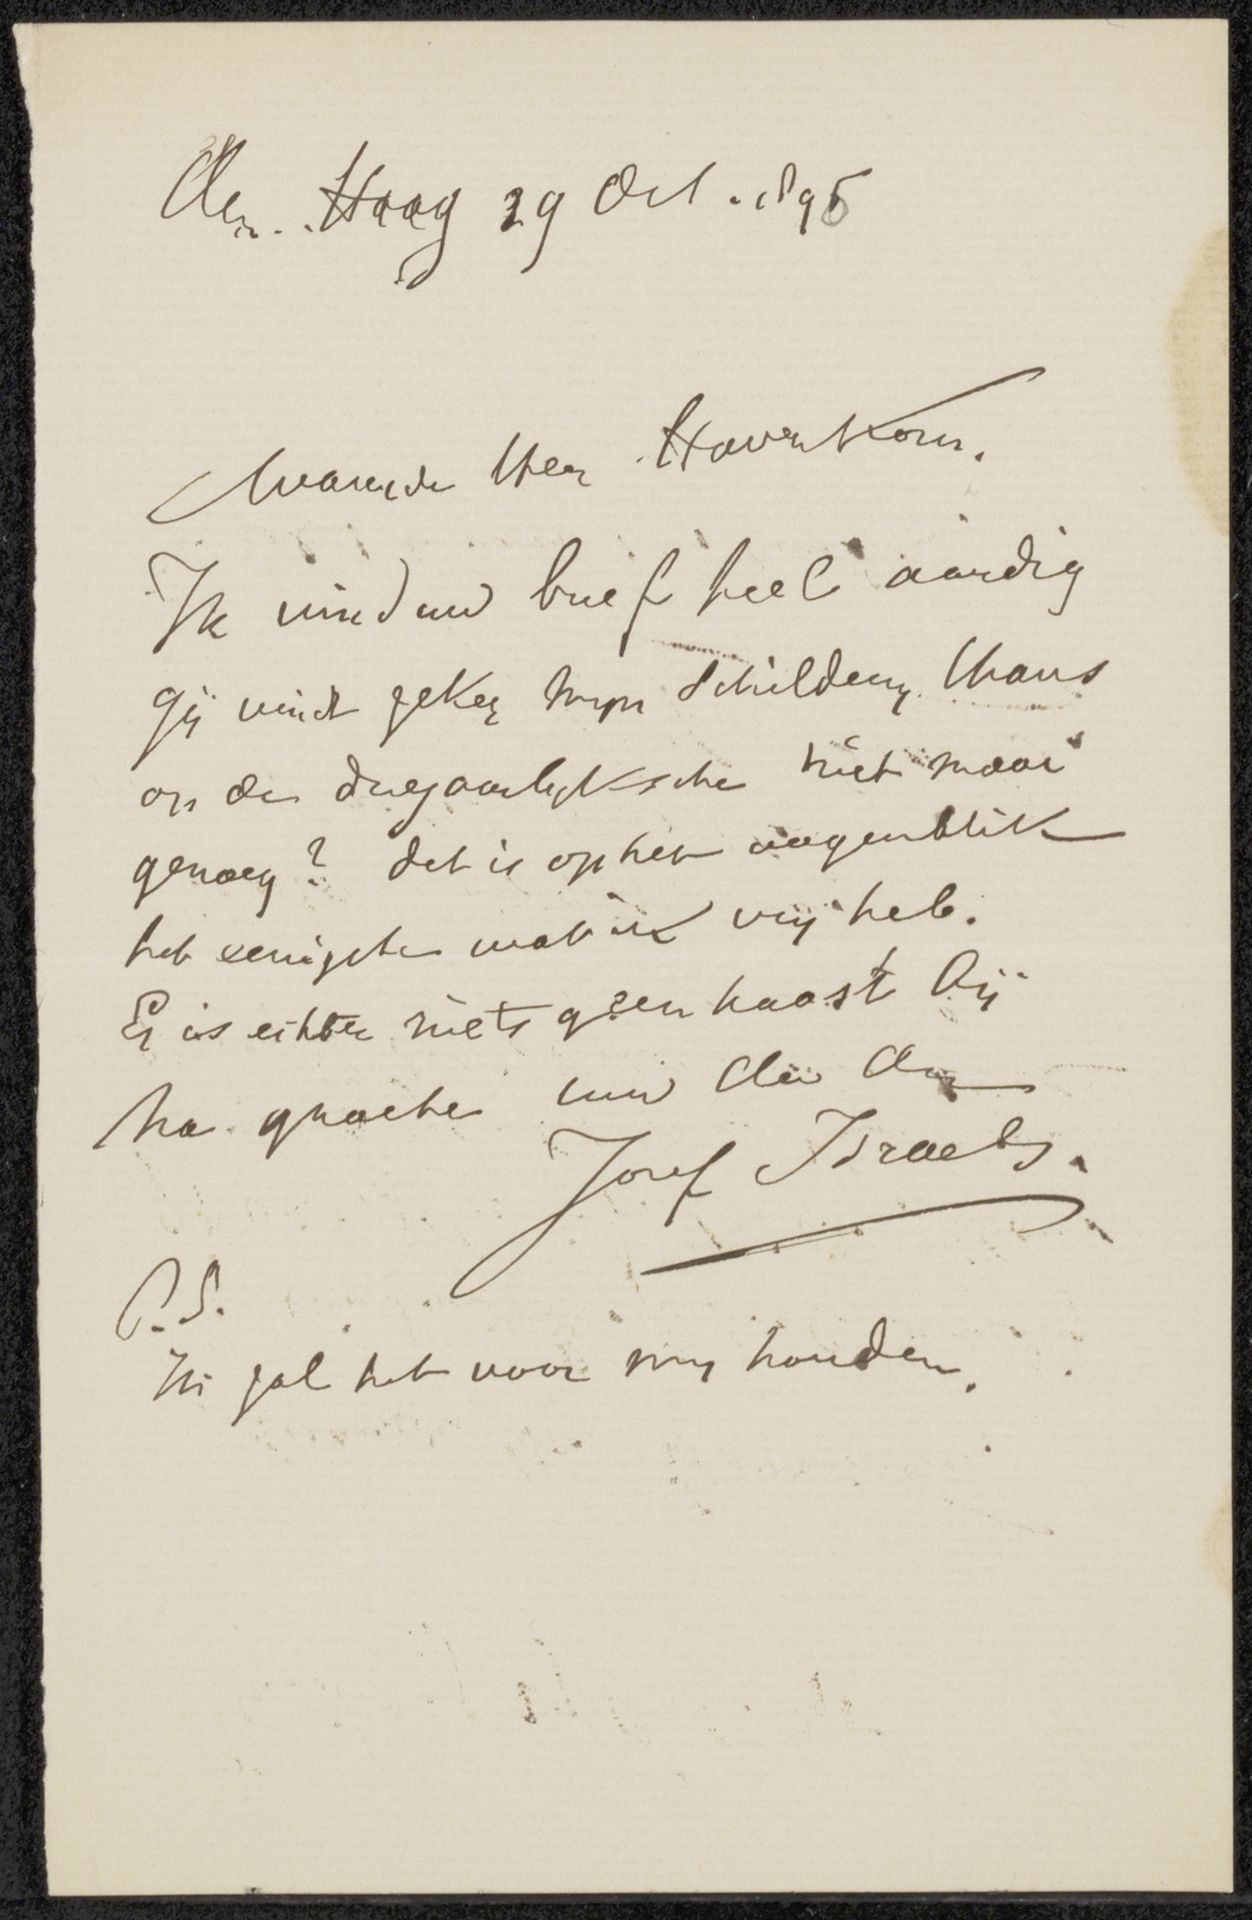 Den Haag 29 Oct. 1895
Waarde Heer Haverkorn.
Ik vind uw brief heel aardig
gij vindt zeker mijn Schildery thans
op de driejaarlyksche niet mooi
genoeg? dat is op het oogenblik
het eenigste wat ik vrij heb.
Er is echter niets geen haast bij
na groete uw dw dr
Jozef Israëls.
P.S.
Ik zal het voor my houden.